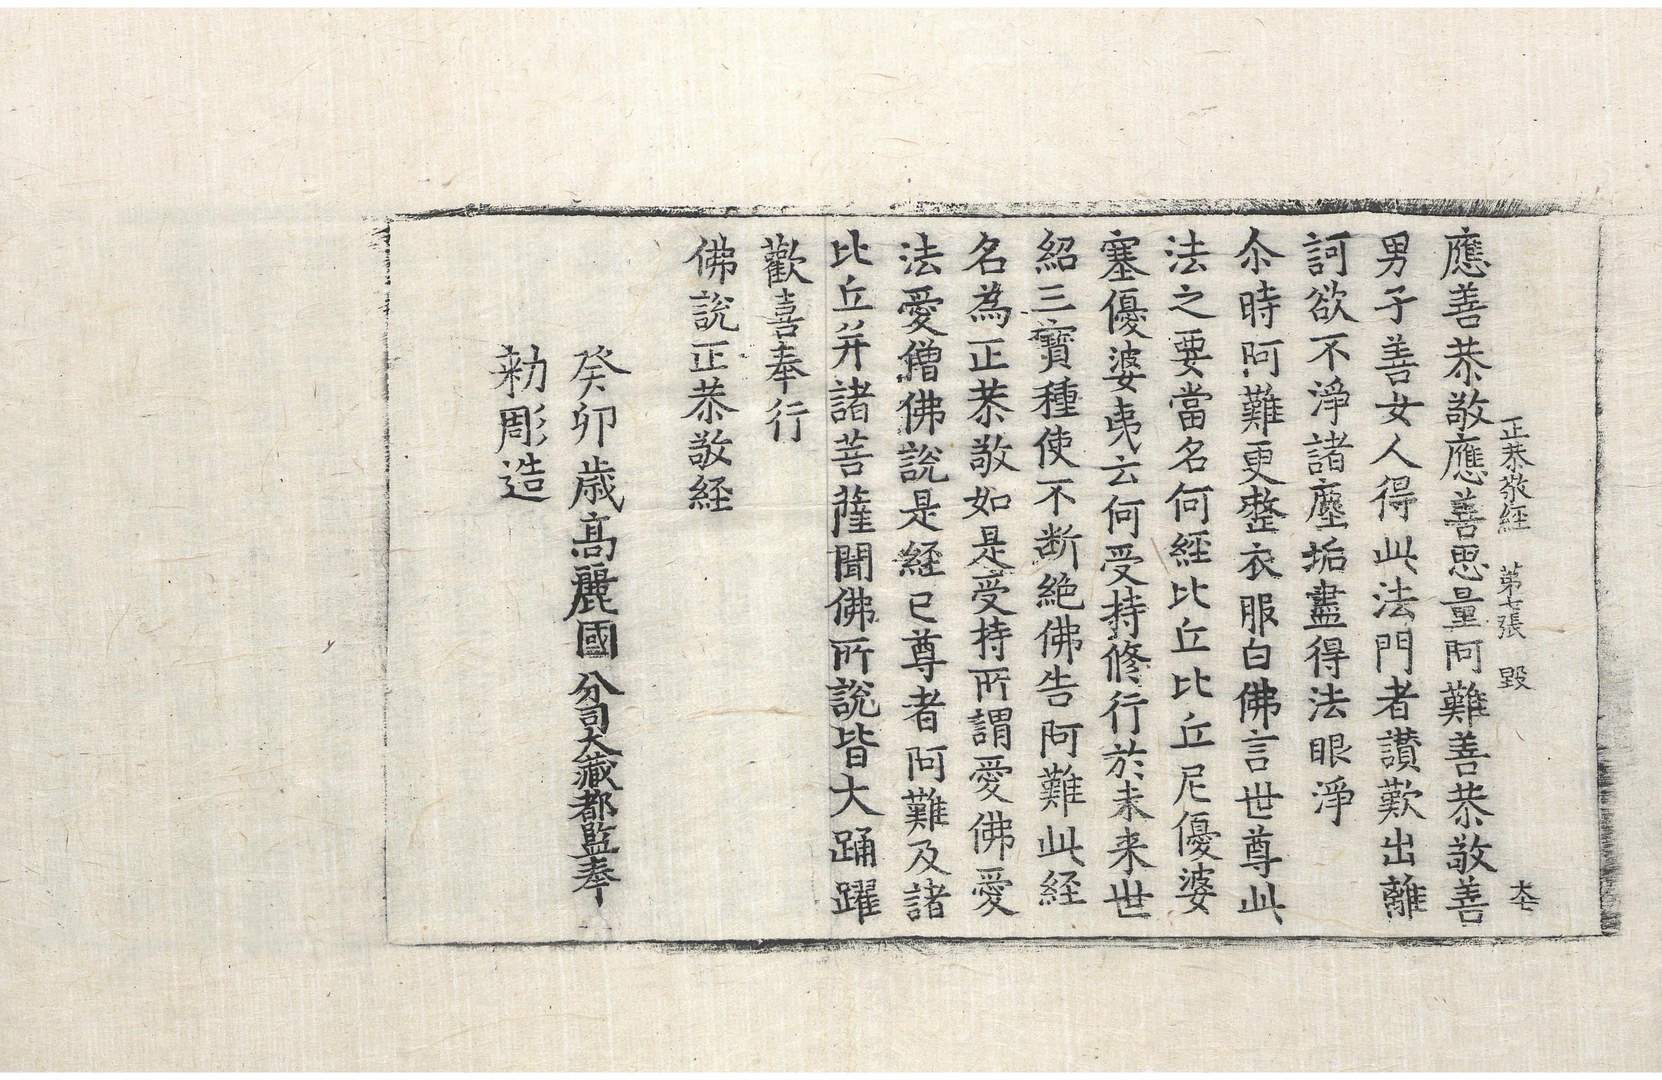 正恭敬経　第七張　毀
大七
應善恭敬應善思量阿難善恭敬善
男子善女人得此法門者讃歎出離
訶欲不淨諸塵垢盡得法眼淨
尒時阿難更整衣服白佛言世尊此
法之要當名何經比丘比丘尼優婆
塞優婆夷云何受持修行於未来世
紹三寳種使不断絶佛告阿難此経
名為正恭敬如是受持所謂愛佛愛
法愛僧佛說是経已尊者阿難及諸
比丘并諸菩薩聞佛所說皆大踊躍
歡喜奉行
佛說正恭敬経
癸卯歳高麗國分司大藏都監奉
勑彫造